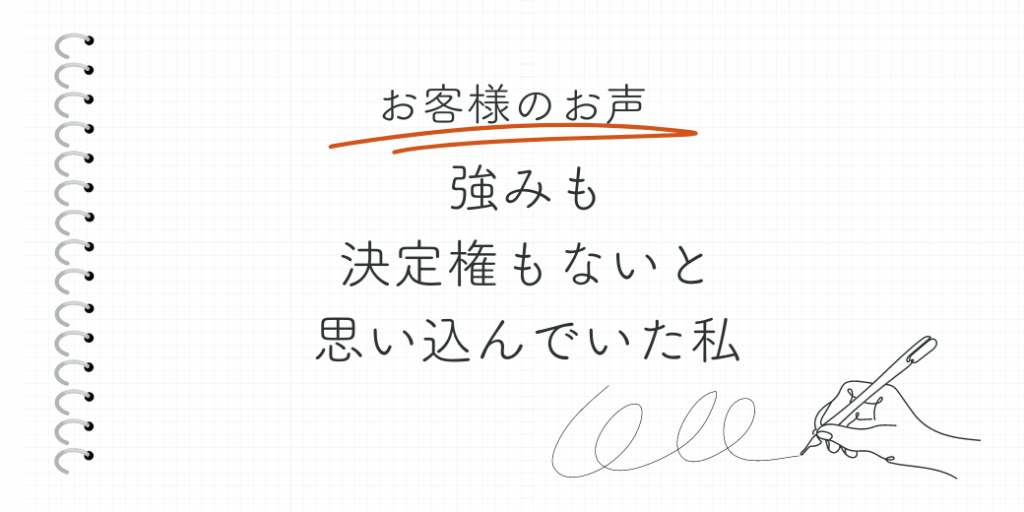 お客様のお声
強みも
決定権もないと
思い込んでいた私